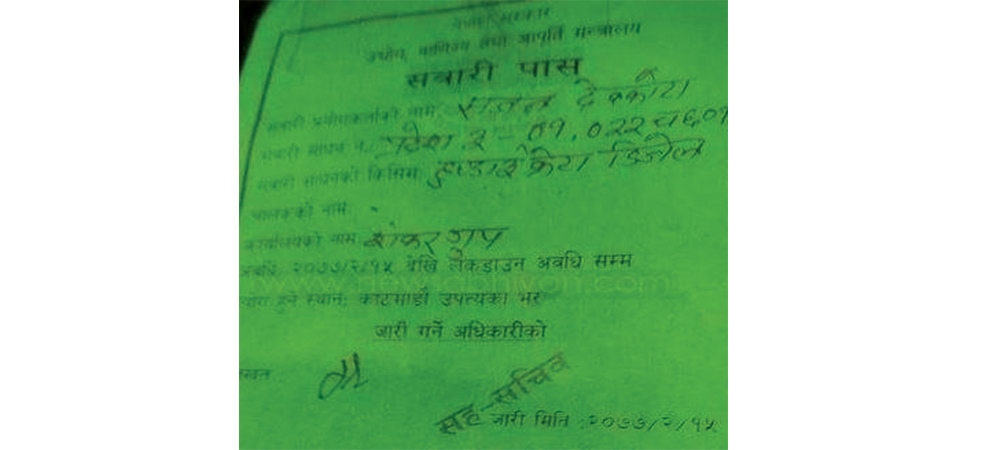 नेपाल सरकार
उद्योग, वाणिज्य तथा आपूर्ति मन्त्रालय
सवारी पास
सवारी प्रयोगकर्ताको नाम:
सवारी साधन न.: प्रदेश २ - ०१.०२२ च ६८०१
सवारी साधनको किसिम: हुण्डाई क्रेटा डिजेल
चालकको नाम:
कार्यालयको नाम: शंकर ग्रुप
अवधि: २०७७/२/१५ देखि लकडाउन अवधि सम्म
प्रयोग हुने स्थान: काठमाडौं उपत्यका भर
जारी गर्ने अधिकारीको
सह-सचिव
जारी मिति :२०७७/२/१५